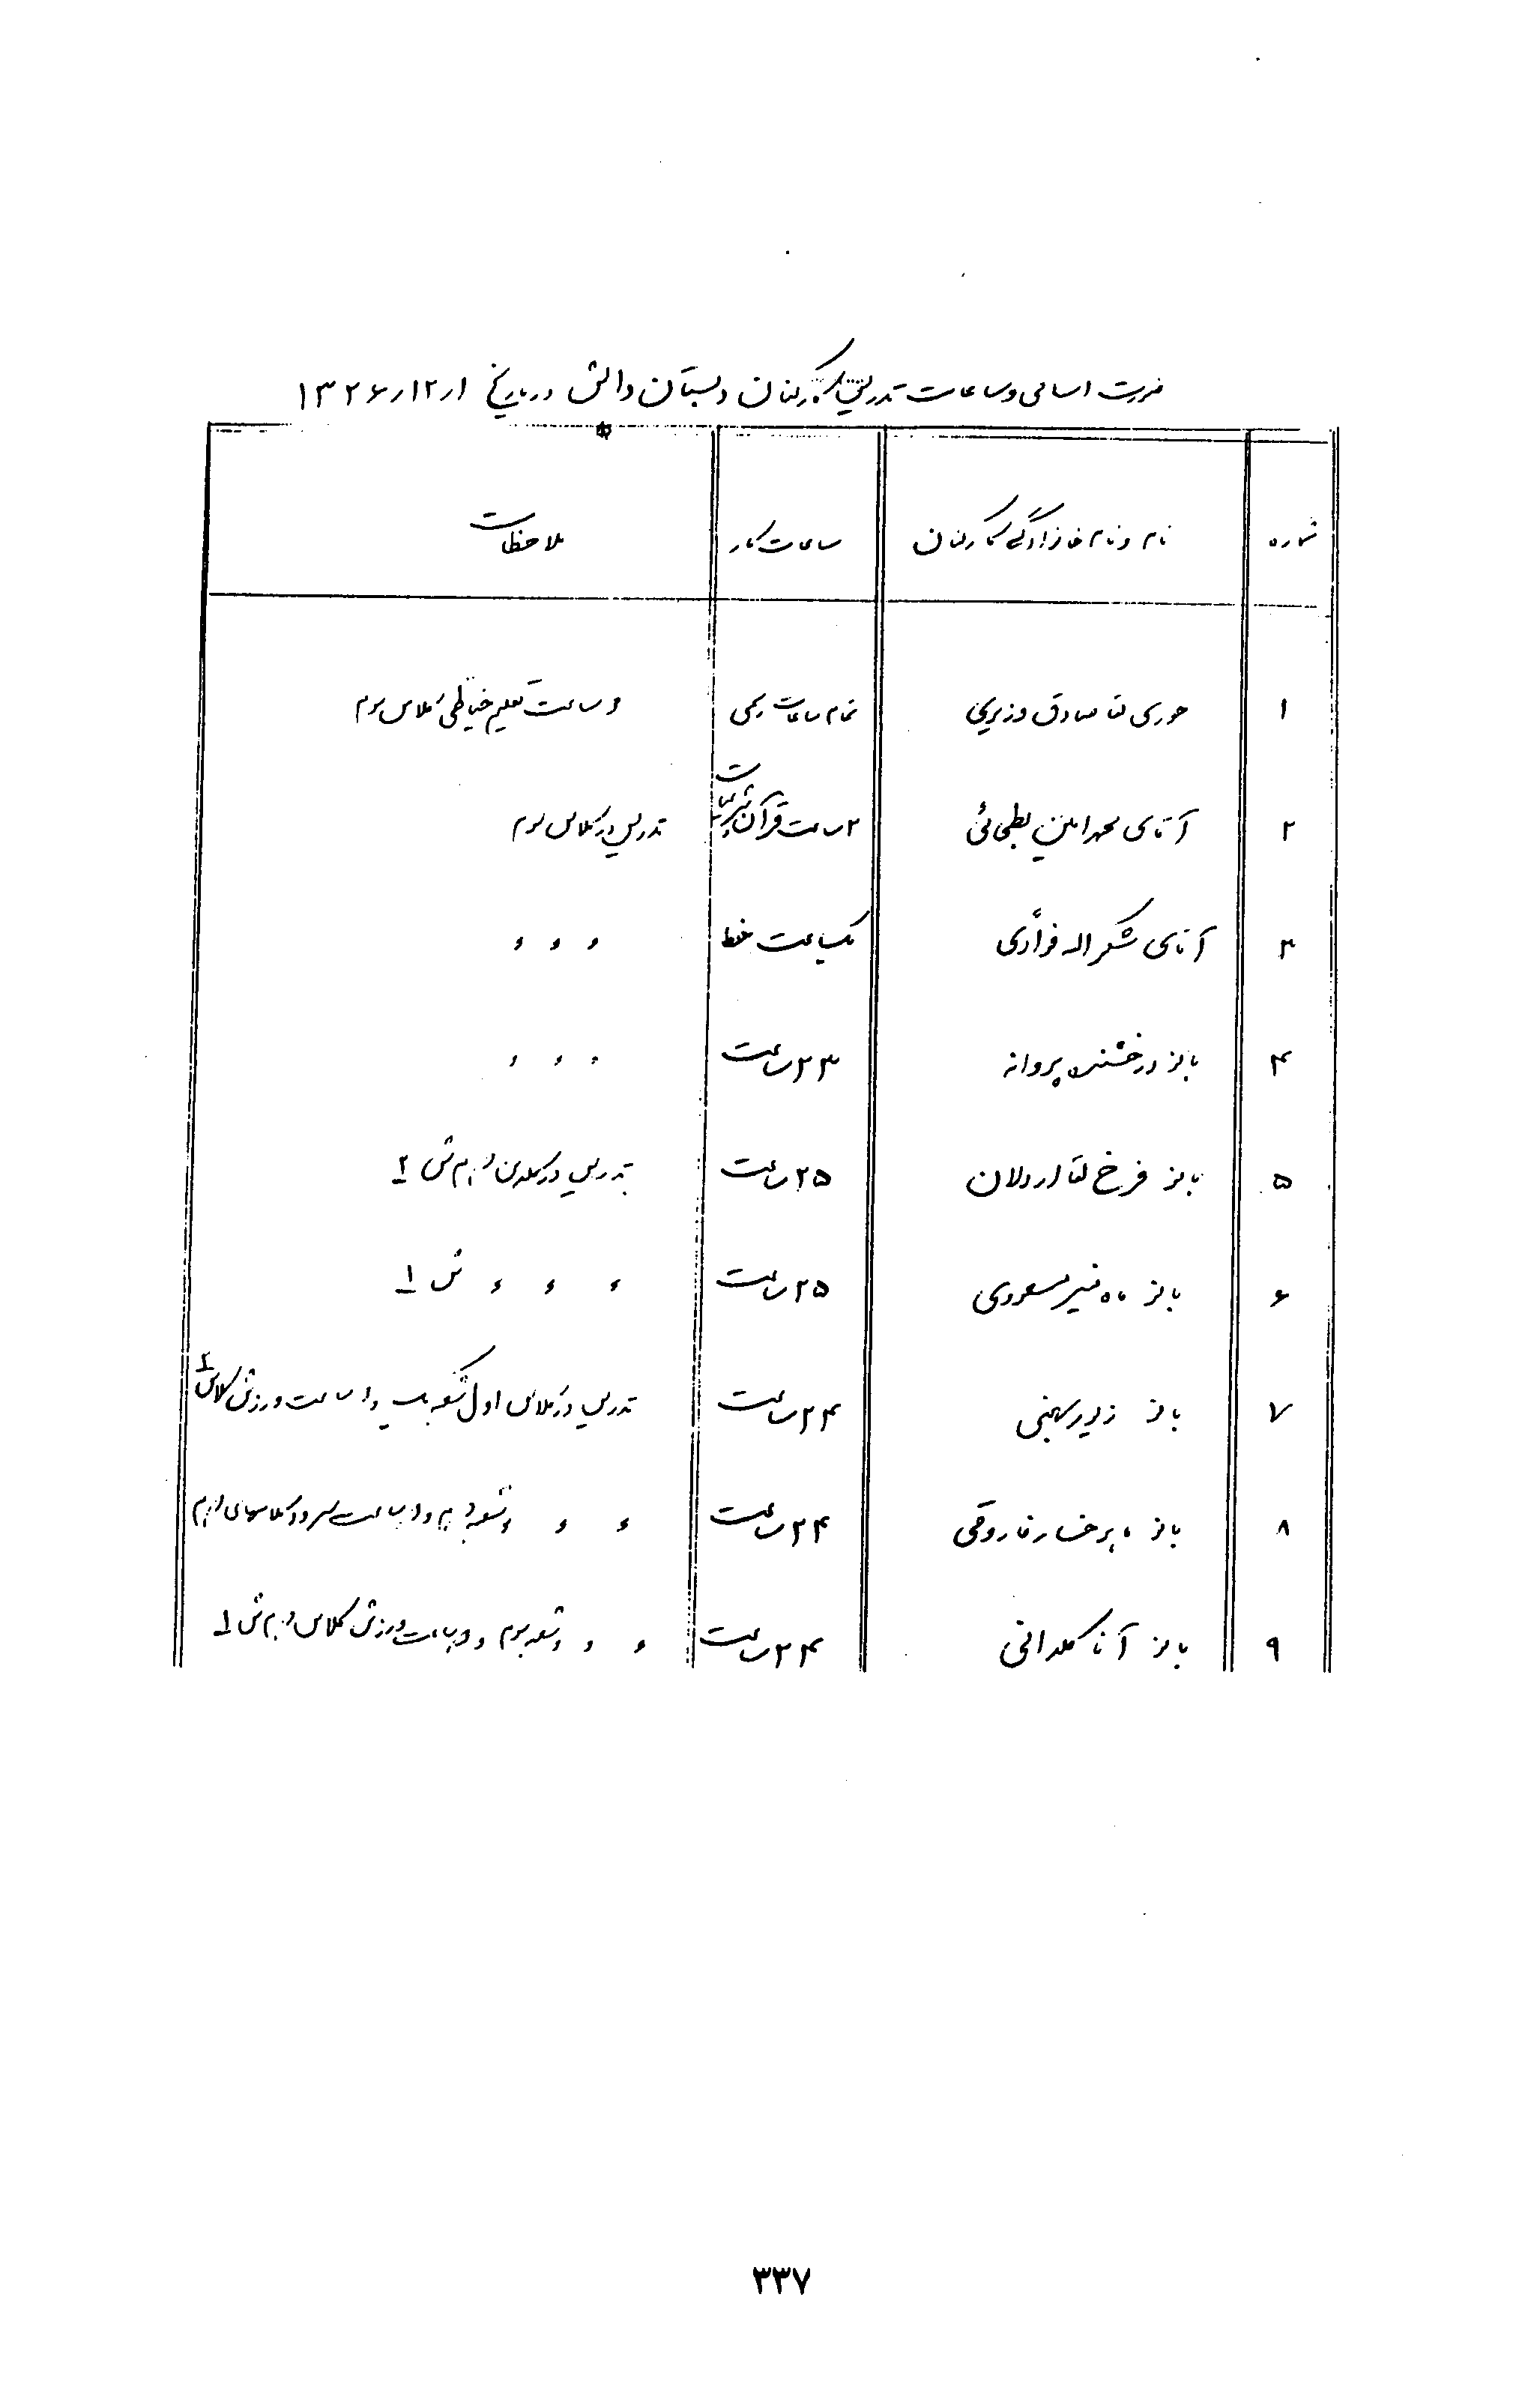 صورت اسامی و ساعات تدریس کارکنان دبستان دانش در تاریخ ۱ر۱۲ر۱۳۲۶
شماره نام و نام خانوادگی کارکنان ساعات کار ملاحظات
۱ حوری لقا صادق وزیری تمام ساعات رسمی و ساعت تعلیم خیاطی کلاس سوم
۲ آقای محمد امین بطحائی ۲ ساعت قرآن شرعیات تدریس در کلاس سوم
۳ آقای شکراله فؤادی یکساعت خط ء ء ء
۴ بانو درخشنده پروانه ۲۳ ساعت ء ء ء
۵ بانو فرخ لقا اردلان ۲۵ ساعت تدریس در کلاس دوم ش ۲
۶ بانو ماه منیر مسعودی ۲۵ ساعت ء ء ء ش ۱
۷ بانو زیور میهنی ۲۴ ساعت تدریس در کلاس اول شعبه یک و ساعت ورزش کلاس ۲
۸ بانو ماهرخسار فاروقی ۲۴ ساعت ء ء ء شعبه دوم و ساعت سرود کلاسهای دوم
۹ بانو آنا کلدانی ۲۴ ساعت ء ء ء شعبه سوم و ساعت ورزش کلاس دوم ش ۱
۳۳۷